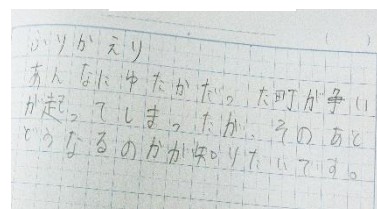 ふりかえり
あんなにゆたかだった町が争い
が起ってしまったが、そのあと
どうなるのかが知りたいです。